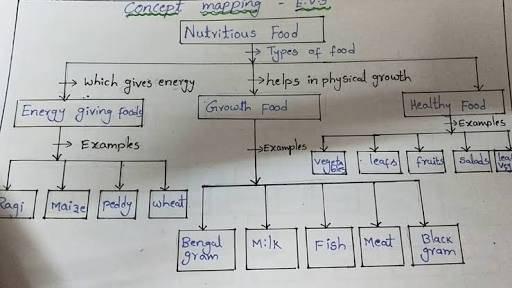 Concept mapping - E.V.S
Nutritious Food
Types of food
which gives energy
helps in physical growth
Energy giving foods
Growth Food
Healthy Food
Examples
Examples
Examples
vegeta
bles
leafs
fruits
salads
Ragi
Maize
Peddy
wheat
Bengal
gram
Milk
Fish
Meat
Black
gram